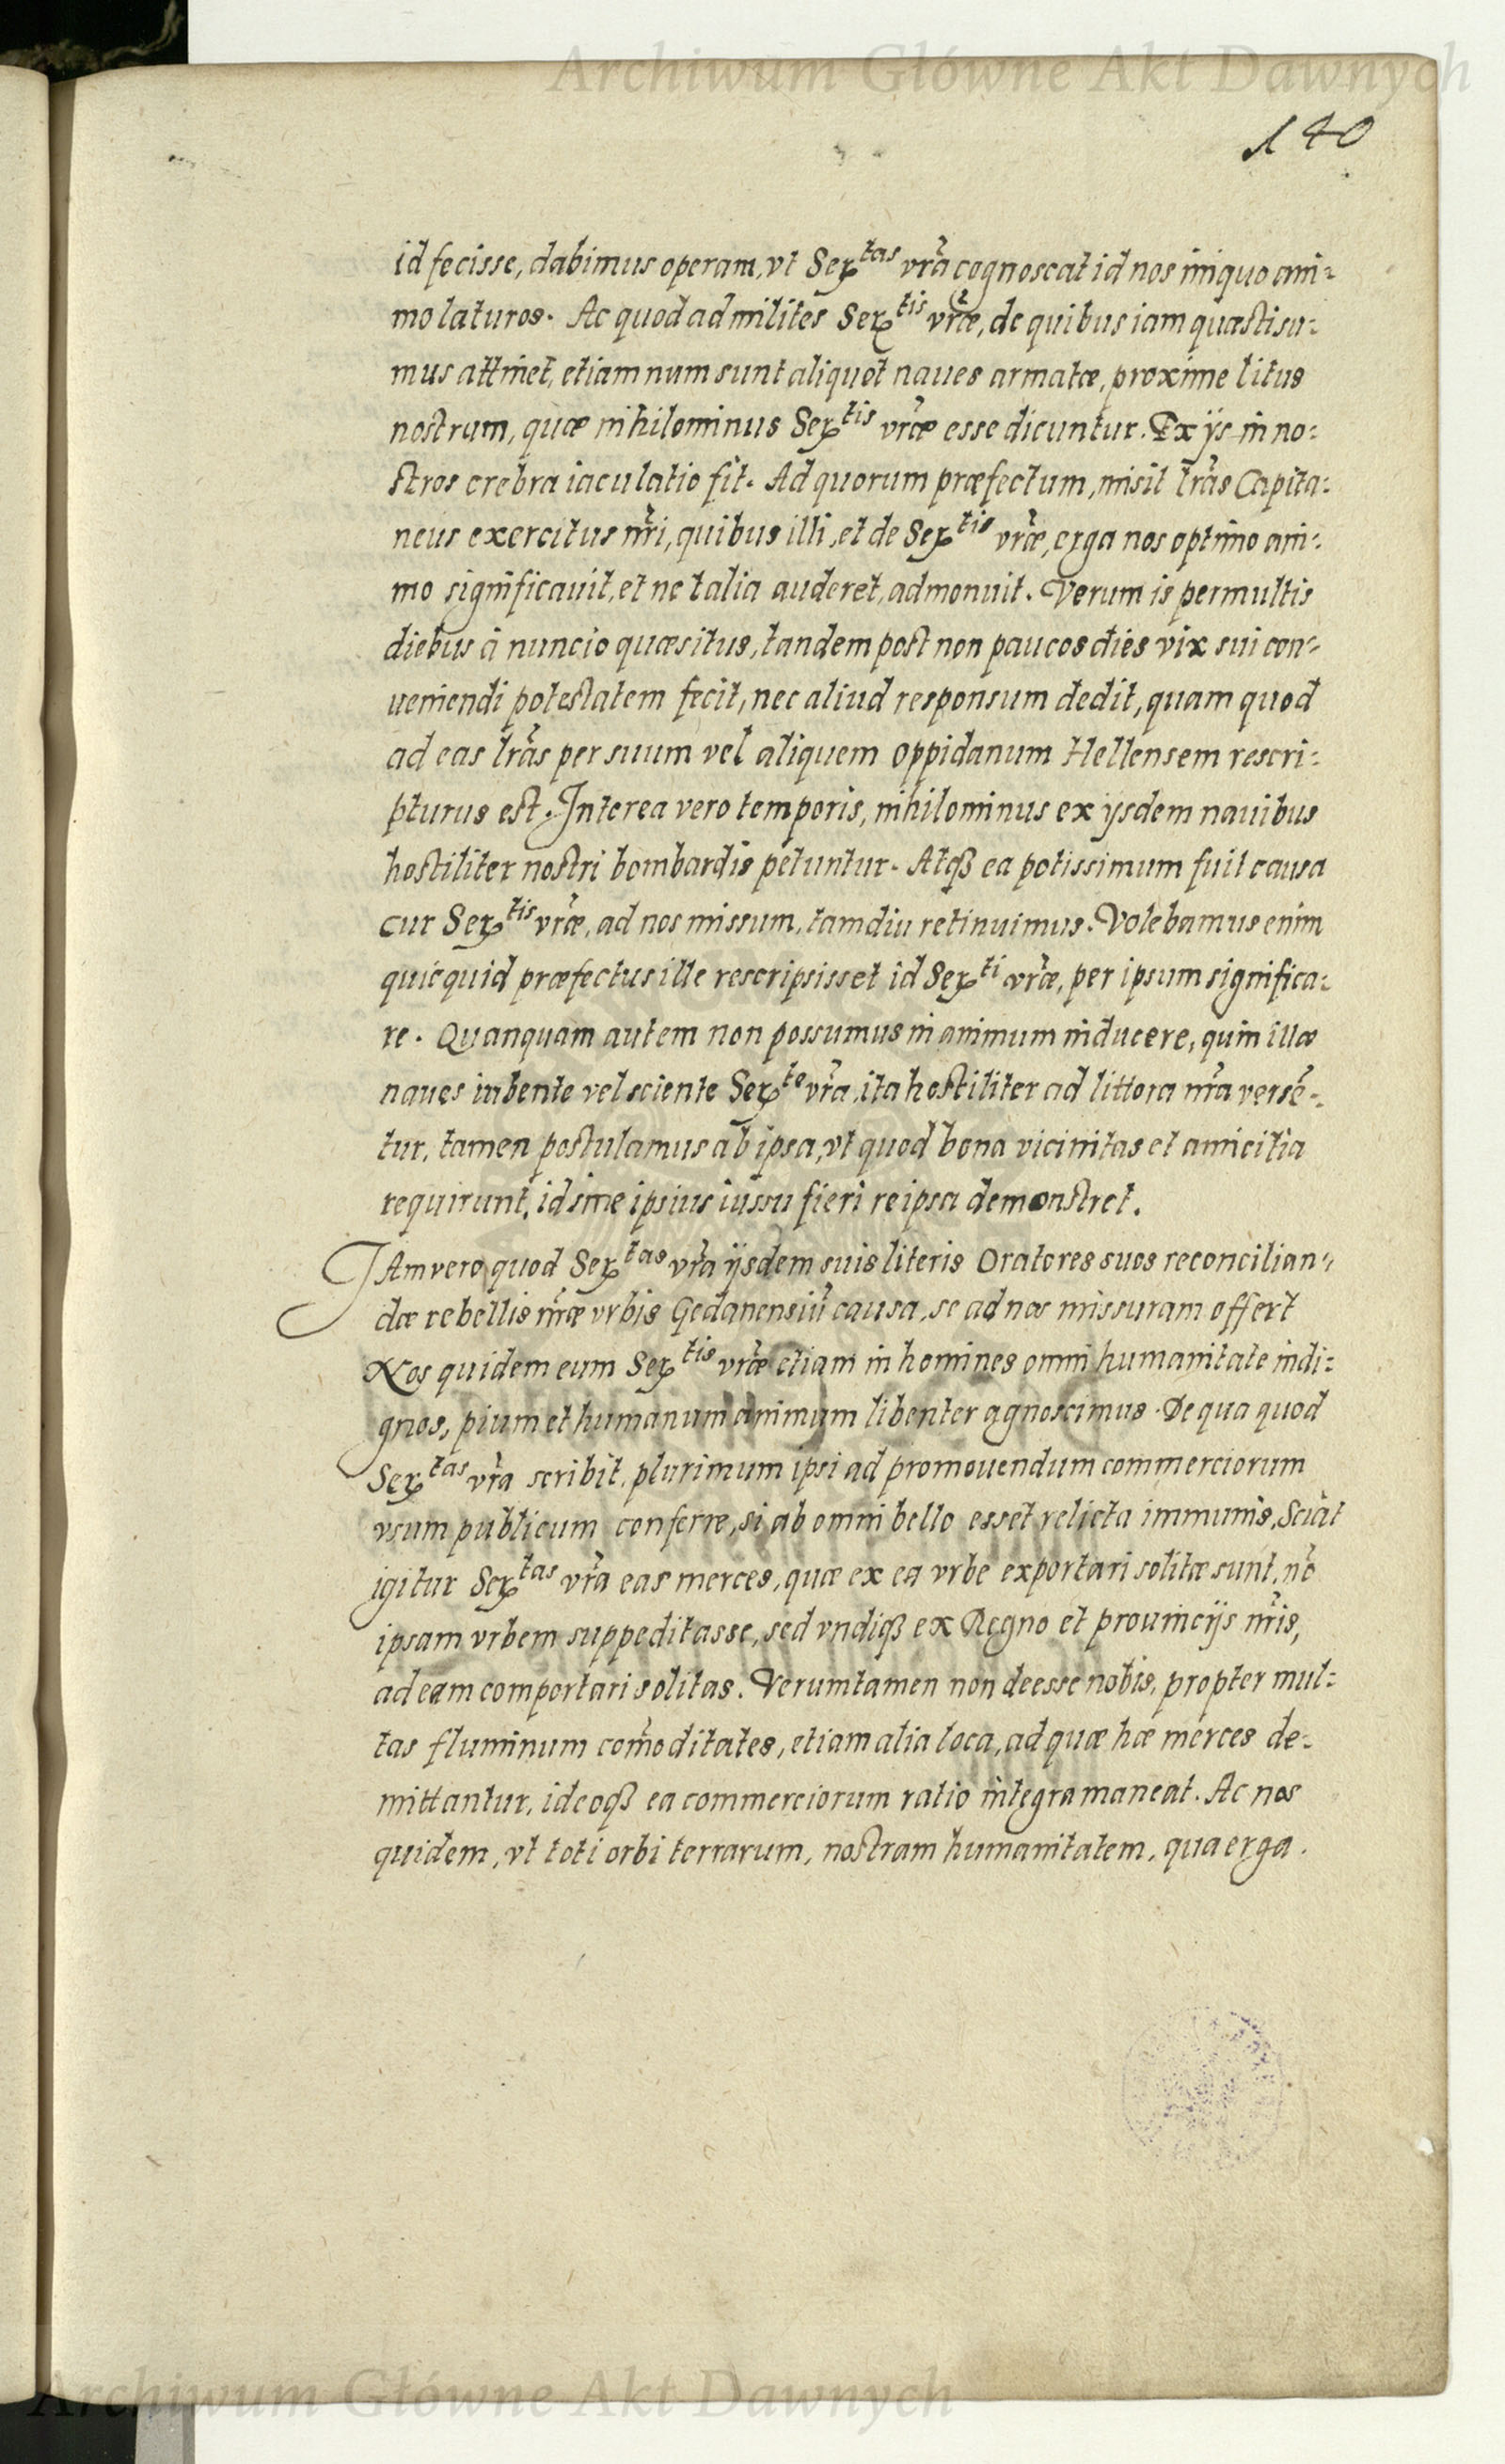 Archiwum Główne Akt Dawnych
140
id fecisse, dabimus operam, vt Ser^tas vr̃a cognoscat id nos iniquo ani=
mo laturos. Ac quod ad milites Ser^tis vr̃æ, de quibus iam quæsti su=
mus attinet, etiamnum sunt aliquot naues armatæ, proxime litus
nostrum, quæ nihilominus Ser^tis vr̃æ esse dicuntur. Ex ijs in no=
stros crebra iaculatio fit. Ad quorum præfectum, misit lr̃as Capita=
neus exercitus nr̃i, quibus illi, et de Ser^tis vr̃æ, erga nos optimo ani=
mo significauit, et ne talia auderet, admonuit. Verum is permultis
diebus à nuncio quæsitus, tandem post non paucos dies vix sui con=
ueniendi potestatem fecit, nec aliud responsum dedit, quam quod
ad eas lr̃as per suum vel aliquem oppidanum Hellensem rescri=
pturus est. Interea vero temporis, nihilominus ex ijsdem nauibus
hostiliter nostri bombardis petuntur. Atqß ea potissimum fuit causa
cur Ser^tis vr̃æ, ad nos missum, tamdiu retinuimus. Volebamus enim
quicquid præfectus ille rescripsisset id Ser^ti vr̃æ, per ipsum significa=
re. Quanquam autem non possumus in animum inducere, quin illæ
naues iubente vel sciente Ser^te vr̃a, ita hostiliter ad littora nr̃a versẽ=
tur, tamen postulamus ab ipsa, vt quod bona vicinitas et amicitia
requirunt, id sine ipsius iussu fieri reipsa demonstret.
IAm vero quod Ser^tas vr̃a ijsdem suis literis Oratores suos reconcilian=
dæ rebellis nr̃æ vrbis Gedanensiũ causa, se ad nos missuram offert
Nos quidem eum Ser^tis vr̃æ etiam in homines omni humanitate indi=
gnos, pium et humanum animum libenter agnoscimus. De qua quod
Ser^tas vr̃a scribit, plurimum ipsi ad promouendum commerciorum
vsum publicum conferre, si ab omni bello esset relicta immunis, Sciat
igitur Ser^tas vr̃a eas merces, quæ ex ea vrbe exportari solitæ sunt, nõ
ipsam vrbem suppeditasse, sed vndiqß ex Regno et prouincijs nr̃is,
ad eam comportari solitas. Verumtamen non deesse nobis, propter mul=
tas fluminum com̃oditates, etiam alia loca, ad quæ hæ merces de=
mittantur, ideoqß ea commerciorum ratio integra maneat. Ac nos
quidem, vt toti orbi terrarum, nostram humanitatem, qua erga.
Archiwum Główne Akt Dawnych